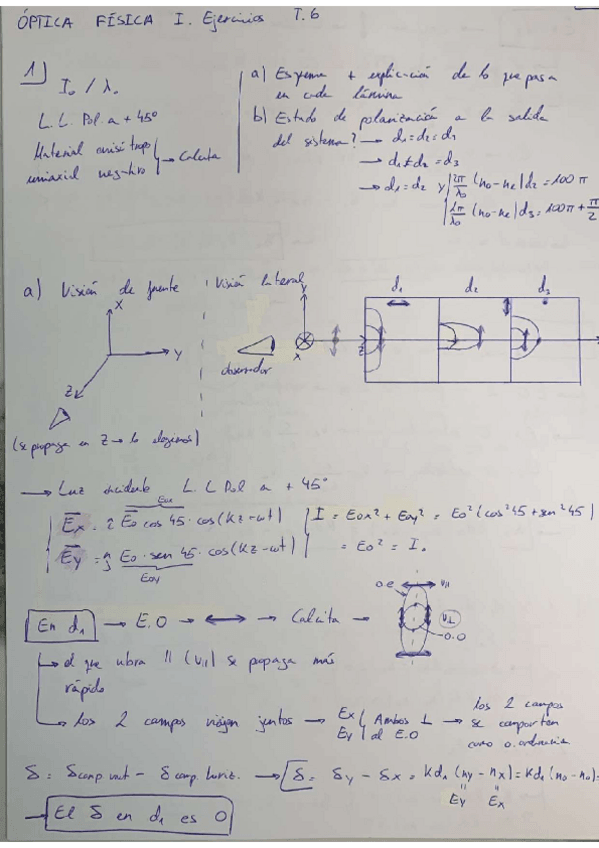 ÓPTICA FÍSICA I. Ejercicios T.6
1)
I₀ / λ₀
L.L. Pol. a + 45º
Material anisótropo
uniaxial negativo → Calcita
a) Esquema + explicación de lo que pasa
en cada lámina
b) Estado de polarización a la salida
del sistema? → d₁=d₂=d₃
→ d₁≠d₂=d₃
→ d₁=d₂ y 2π/λ₀ (no-ne)d₂=100π
2π/λ₀ (no-ne)d₃=100π+π/2
a) Visión de frente
Visión lateral
X
Y
Z
y
x
z
d₁ d₂ d₃
observador
(se propaga en Z → lo elegimos)
→ Luz incidente L.L Pol a + 45º
Eox
Ex = E₀ cos 45 · cos(Kz-ωt)
Ey = E₀ · sen 45 · cos(Kz-ωt)
Eoy
I = Eox² + Eoy² = E₀² (cos²45 + sen²45)
= E₀² = I₀
En d₁ → E.O → ↔ → Calcita →
o.e
v||
v⊥
o.o
→ el que vibra || (v||) se propaga más
rápido
→ los 2 campos viajan juntos → Ex Ey Ambos ⊥ al E.O → los 2 campos
se comportan
como o. ordinaria
δ = δcomp vert - δcomp. horiz. → δ = δy - δx = Kd₁ (ny - nx) = Kd₁ (no - no) =
Ey Ex
→ El δ en d₁ es 0